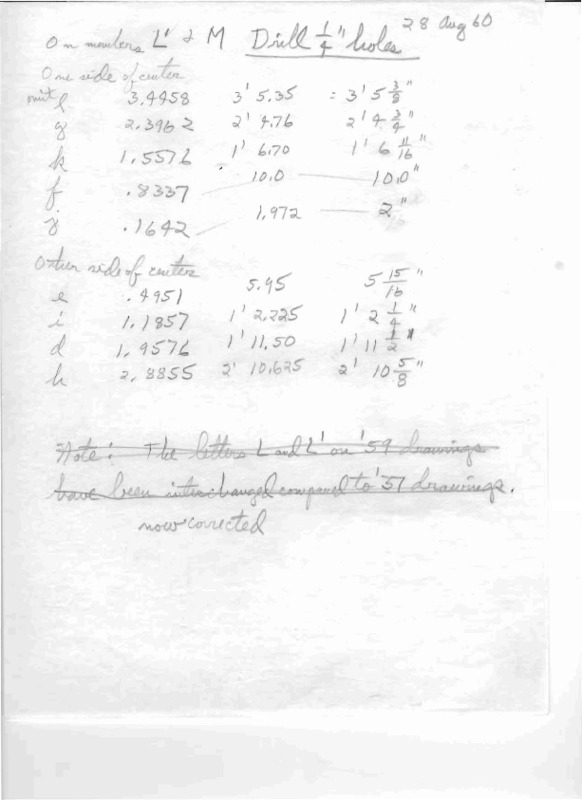 28 Aug 60
On members L' & M Drill 1/4" holes
One side of center
omit l 3.4458 3' 5.35 = 3' 5 3/8"
g 2.3962 2' 4.76 2' 4 3/4"
k 1.5576 1' 6.70 1' 6 11/16"
f .8337 10.0 10.0"
j .1642 1.972 2"
Other side of center
e .4951 5.95 5 15/16"
i 1.1857 1' 2.225 1' 2 1/4"
d 1.9576 1' 11.50 1' 11 1/2"
h 2.8855 2' 10.625 2' 10 5/8"
Note: The letters L and L' on '59 drawings
have been interchanged compared to '57 drawings.
now corrected